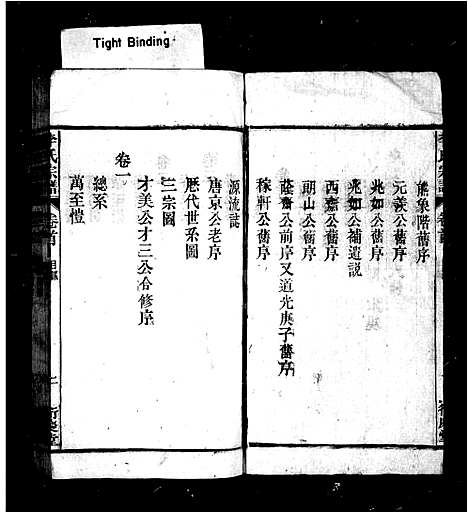 Tight Binding
熊象階舊序
元羨公舊序
兆如公舊序
兆如公補遺説
西齋公舊序
明山公舊序
蔭齋公前序又道光庚子舊序
稼軒公舊序
源流誌
唐京公老序
歷代世系圖
三宗圖
才美公才三公合修序
卷一
總系
萬至愷
李氏宗譜
卷首